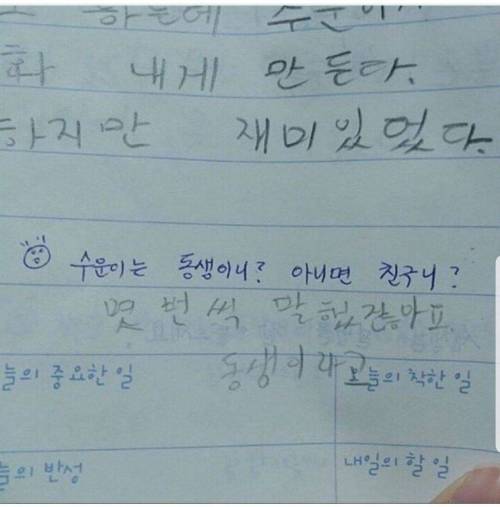 하는데 수운이가
화 내게 만든다.
하지만 재미있었다.
수운이는 동생이니? 아니면 친구니?
몇 번 씩 말 했잖아요.
동생이라고
늘의 중요한 일 오늘의 착한 일
늘의 반성 내일의 할 일